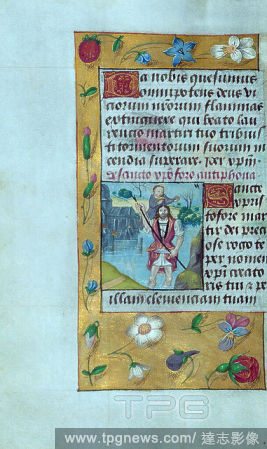 Da nobis quesumus
omnipotens deus vi
ciorum nrorum flammas
extinguere qui beato lau
rencio martiri tuo tribuis
ti tormentorum suorum in
cendia superare. per xpm.
De sancto xpoforo antiphona
Sancte
xpris
tofore mar
tir dei preci
ose rogo te
per nomen
xpi creato
ris tui et
illam clemenciam tuam
TPG
www.tpgnews.com / 達志影像